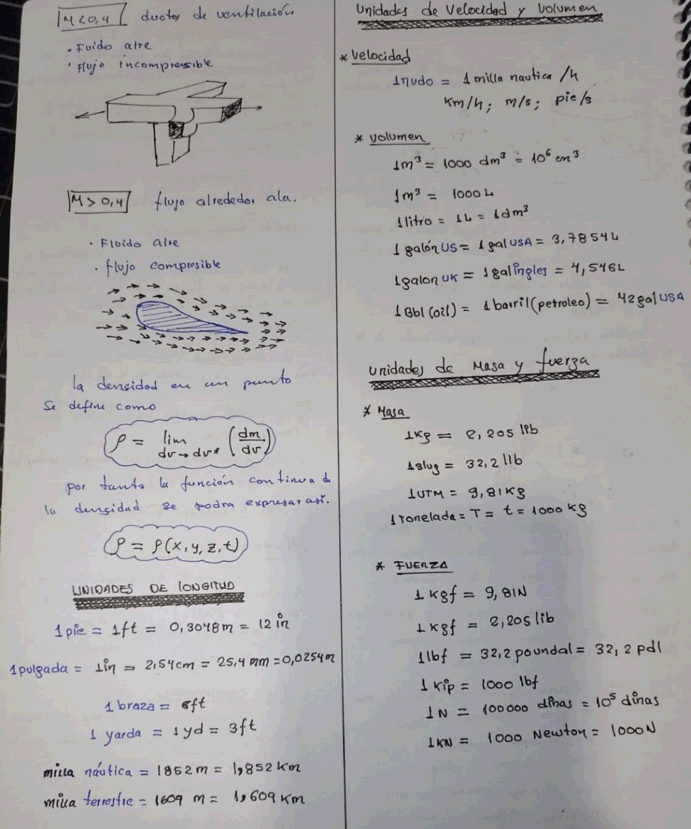 M<0,4 ductos de ventilación
· Fuido aire
· Flujo incompresible
M>0,4 flujo alrededor ala.
· Fluido aire
· flujo compresible
la densidad en un punto
Se define como
ρ = lim dv→dv* (dm/dv)
por tanto la función continua de
la densidad se podra expresar asi.
ρ = ρ(x,y,z,t)
UNIDADES DE LONGITUD
1 pie = 1ft = 0,3048m = 12 in
1 pulgada = 1in = 2,54cm = 25,4 mm = 0,0254m
1 braza = 6ft
1 yarda = 1yd = 3ft
milla náutica = 1852m = 1,852 km
milla terrestre = 1609 m = 1,609 Km
Unidades de Velocidad y Volumen
* Velocidad
1nudo = 1 milla nautica /h
Km/h; m/s; pie/s
* Volumen
1m³ = 1000 dm³ = 10⁶ cm³
1m³ = 1000L
1 litro = 1L = 1dm³
1 galón US = 1 gal USA = 3,7854L
1galon UK = 1gal ingles = 4,546L
1Bbl (oil) = 1 barril (petroleo) = 42 gal USA
Unidades de Masa y fuerza
* Masa
1Kg = 2,205 lib
1slug = 32,2 lib
1UTM = 9,81Kg
1 Tonelada = T = t = 1000 kg
* FUERZA
1 Kgf = 9,81N
1 Kgf = 2,205 lib
1 lbf = 32,2 poundal = 32,2 pdl
1 Kip = 1000 lbf
1 N = 100000 dinas = 10⁵ dinas
1KN = 1000 Newton = 1000N